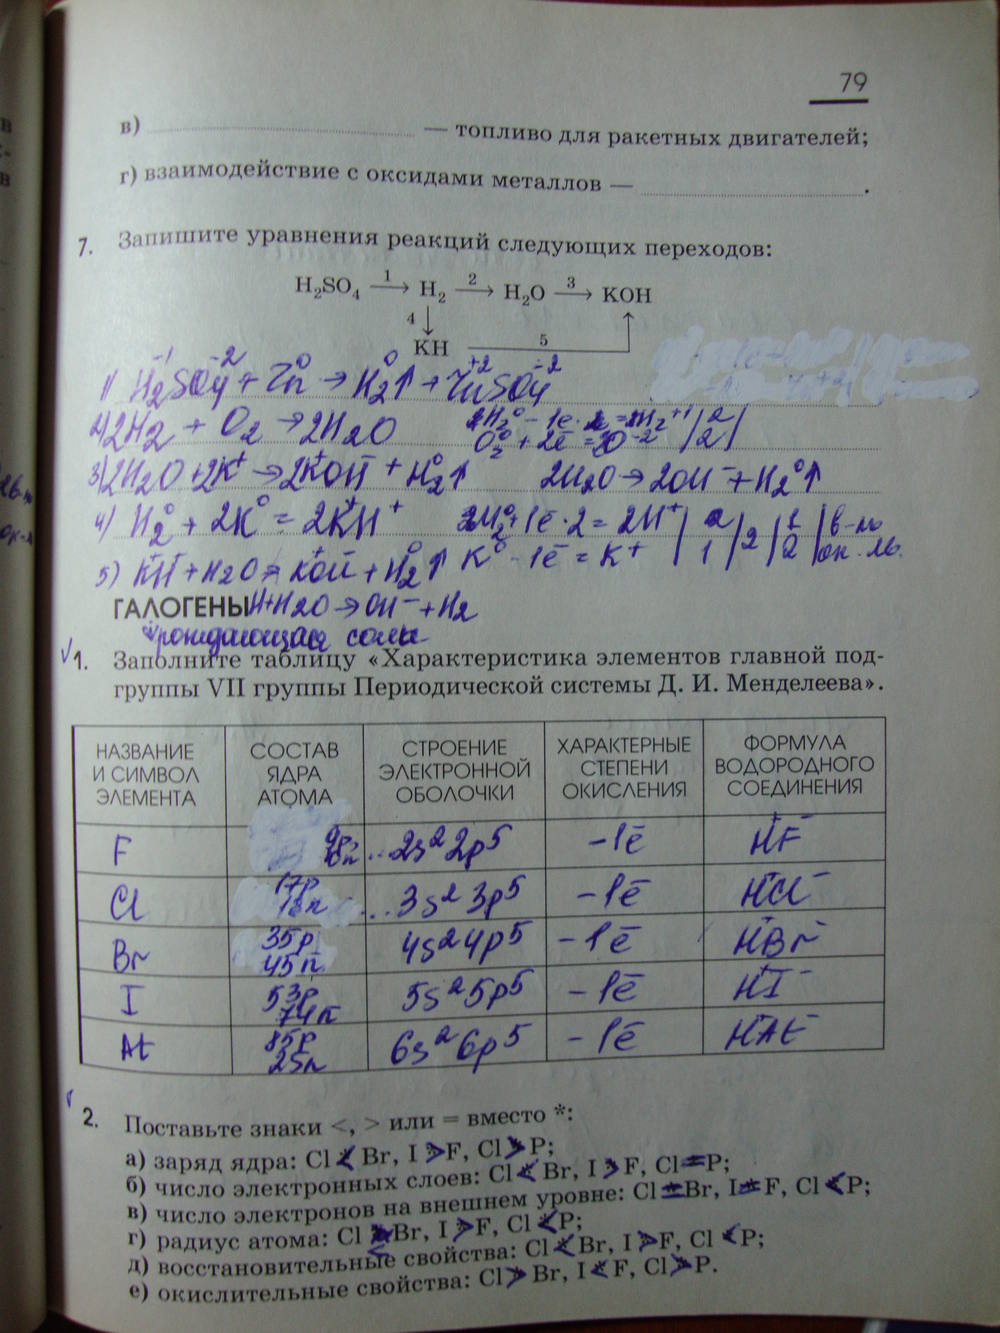 79
в) — топливо для ракетных двигателей;
г) взаимодействие с оксидами металлов — .
7. Запишите уравнения реакций следующих переходов:
H₂SO₄ 1→ H₂ 2→ H₂O 3→ KOH
4↓
KH 5
1) H₂SO₄ + Zn → H₂↑ + ZnSO₄
2) 2H₂ + O₂ → 2H₂O
3) 2H₂O + 2K → 2KOH + H₂↑ 2H₂O → 2OH⁻ + H₂↑
4) H₂ + 2K = 2KH K⁰ - 1ē = K⁺
5) KH + H₂O = KOH + H₂↑
ГАЛОГЕНЫ H + H₂O → OH⁻ + H₂
рождающие соли
1. Заполните таблицу «Характеристика элементов главной под-
группы VII группы Периодической системы Д. И. Менделеева».
НАЗВАНИЕ И СИМВОЛ ЭЛЕМЕНТА СОСТАВ ЯДРА АТОМА СТРОЕНИЕ ЭЛЕКТРОННОЙ ОБОЛОЧКИ ХАРАКТЕРНЫЕ СТЕПЕНИ ОКИСЛЕНИЯ ФОРМУЛА ВОДОРОДНОГО СОЕДИНЕНИЯ
F 9p ...2s²2p⁵ -1ē HF
Cl 17p 18n ...3s²3p⁵ -1ē HCl
Br 35p 45n 4s²4p⁵ -1ē HBr
I 53p 74n 5s²5p⁵ -1ē HI
At 85p 6s²6p⁵ -1ē HAt
2. Поставьте знаки <, > или = вместо *:
а) заряд ядра: Cl < Br, I > F, Cl > P;
б) число электронных слоев: Cl < Br, I > F, Cl = P;
в) число электронов на внешнем уровне: Cl = Br, I = F, Cl < P;
г) радиус атома: Cl < Br, I > F, Cl < P;
д) восстановительные свойства: Cl < Br, I > F, Cl < P;
е) окислительные свойства: Cl > Br, I < F, Cl > P.